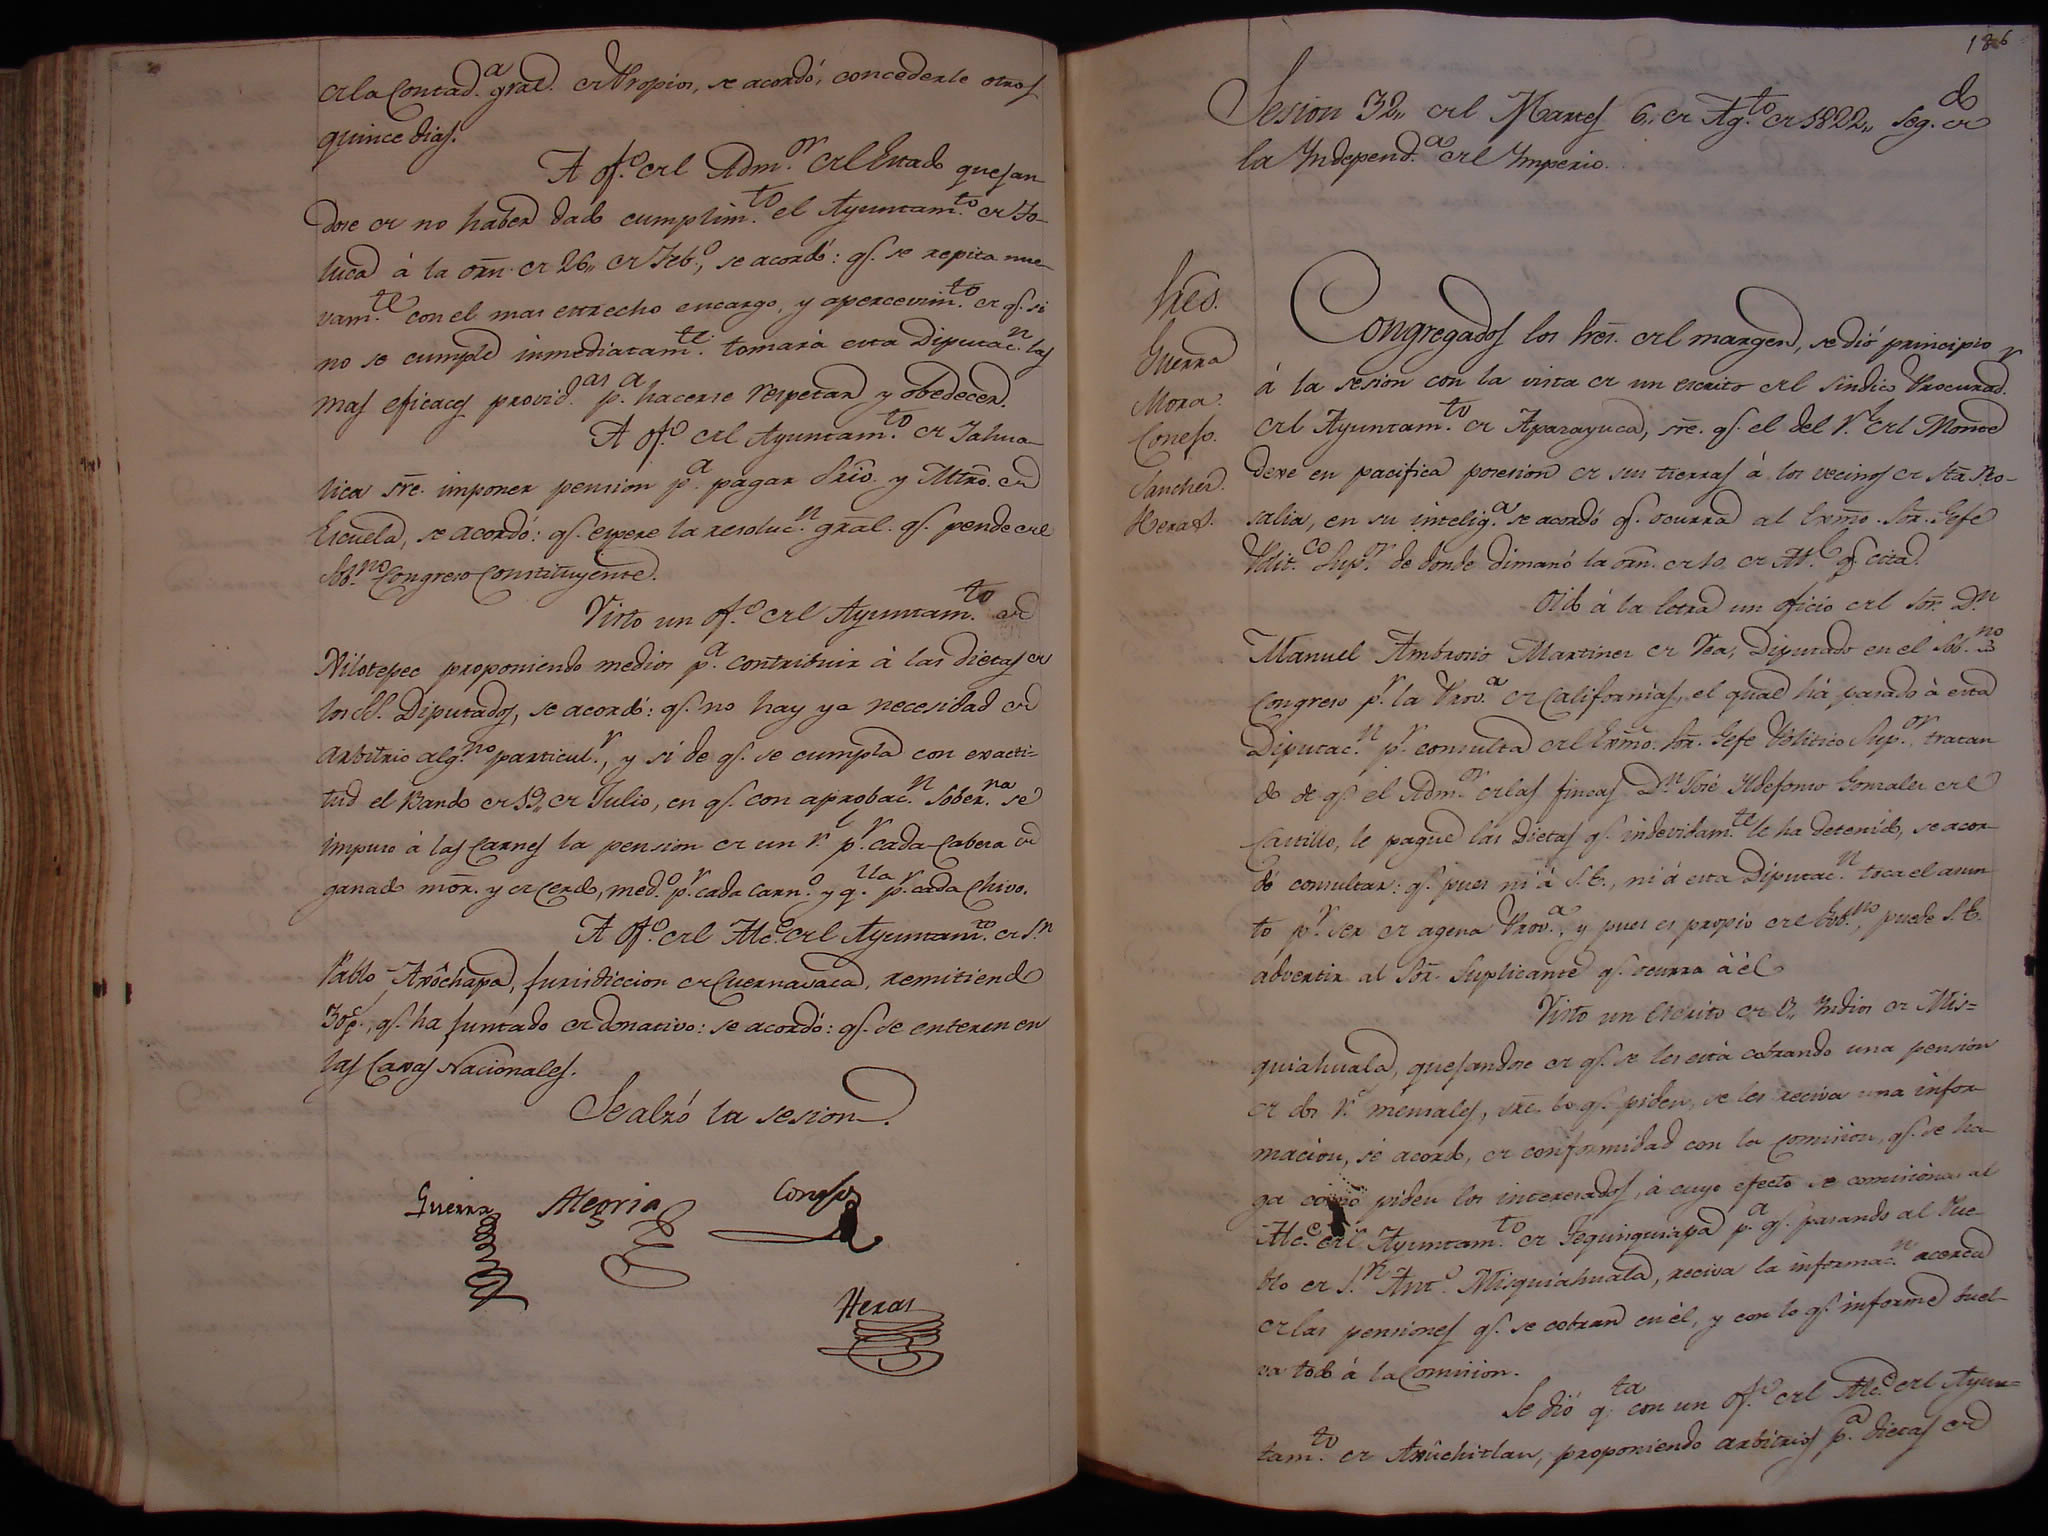 de la Contad.a gral. de Propios, se acordó, concederle otros
quince dias.
A of.o del Adm.or del Estado quejan-
dose de no haber dado cumplim.to el Ayuntam.to de To-
luca á la orn. de 26,, de Feb.o, se acordó: q.e se repita nue-
vam.te con el mas estrecho encargo, y apercevim.to de q.e si
no se cumple inmediatam.te tomará esta Diputac.n las
mas eficaces provid.as p.a hacerse respetar y obedecer.
A of.o del Ayuntam.to de Yahua-
lica sre. imponer pension p.a pagar Srio. y Mtro. de
Escuela, se acordó: q.e espere la resoluc.n gral. q.e pende del
Sob.no Congreso Constituyente.
Visto un of.o del Ayuntam.to de
Xilotepec proponiendo medios p.a contribuir á las dietas de
los SS. Diputados, se acordó: q.e no hay ya necesidad de
arbitrio alg.no particul.r, y sí de q.e se cumpla con exacti-
tud el Bando de 19,, de Julio, en q.e con aprobac.n Sober.na se
impuso á las Carnes la pension de un r.l p.r cada Cabeza de
ganado mor. y de cerdo, med.o p.r cada Carn.o y q.lla p.r cada Chivo.
A Of.o del Alc.e del Ayuntam.to de S.n
Pablo Axochapa, jurisdiccion de Cuernavaca, remitiendo
30 p.s, q.e ha juntado de donativo: se acordó: q.e se enteren en
las Caxas Nacionales.
Se alzó la sesion.
Guerra Alegria Conejo
Heras
186
Sesion 32,, del Martes 6,, de Ag.to de 1822,, seg.do de
la Independ.a del Imperio.
Sres.
Guerra
Mora.
Conejo.
Sanchez.
Heras.
Congregados los Sres. del margen, se dió principio
á la sesion con la vista de un escrito del Sindico Procurad.r
del Ayuntam.to de Apazayuca, sre. q.e el del R.l del Monte
dexe en pacifica posesion de sus tierras á los vecinos de Sta. Ro-
salia, en su intelig.a se acordó q.e ocurra al Exmo. Sor. Gefe
Polit.co Sup.or de donde dimanó la orn. de 10 de Ab.l q.e cita.
Oido á la letra un oficio del Sor. D.n
Manuel Ambrosio Martinez de Vea, Diputado en el Sob.no
Congreso p.r la Prov.a de Californias, el qual há pasado á esta
Diputac.n p.r consulta del Exmo. Sor. Gefe Politico Sup.or, tratan
do de q.e el Adm.or de las fincas D.n José Yldefonso Gonzalez del
Castillo, le pague las Dietas q.e indevidam.te le ha detenido, se acor-
dó consultar: q.e pues ni á S.E., ni á esta Diputac.n toca el asun
to p.r ser de agena Prov.a, y pues es propio del Gob.no, puede S.E.
advertir al Sor. Suplicante q.e ocurra á él.
Visto un Escrito de 3,, Yndios de Mis=
quiahuala, quejandose de q.e se les está cobrando una pension
de dos r.s mensales, sre. lo q.e piden, se les reciva una infor-
macion, se acordó, de conformidad con la Comision, q.e se ha-
ga como piden los interesados, á cuyo efecto se comisiona al
Alc.e del Ayuntam.to de Tequisquiapa p.a q.e pasando al Pue-
blo de S.n Ant.o Misquiahuala, reciva la informac.n acerca
de las pensiones q.e se cobran en él, y con lo q.e informe buel-
va todo á la Comision.
Se dió q.ta con un of.o del Alc.e del Ayun=
tam.to de Axuchitlan, proponiendo arbitrios p.a dietas de